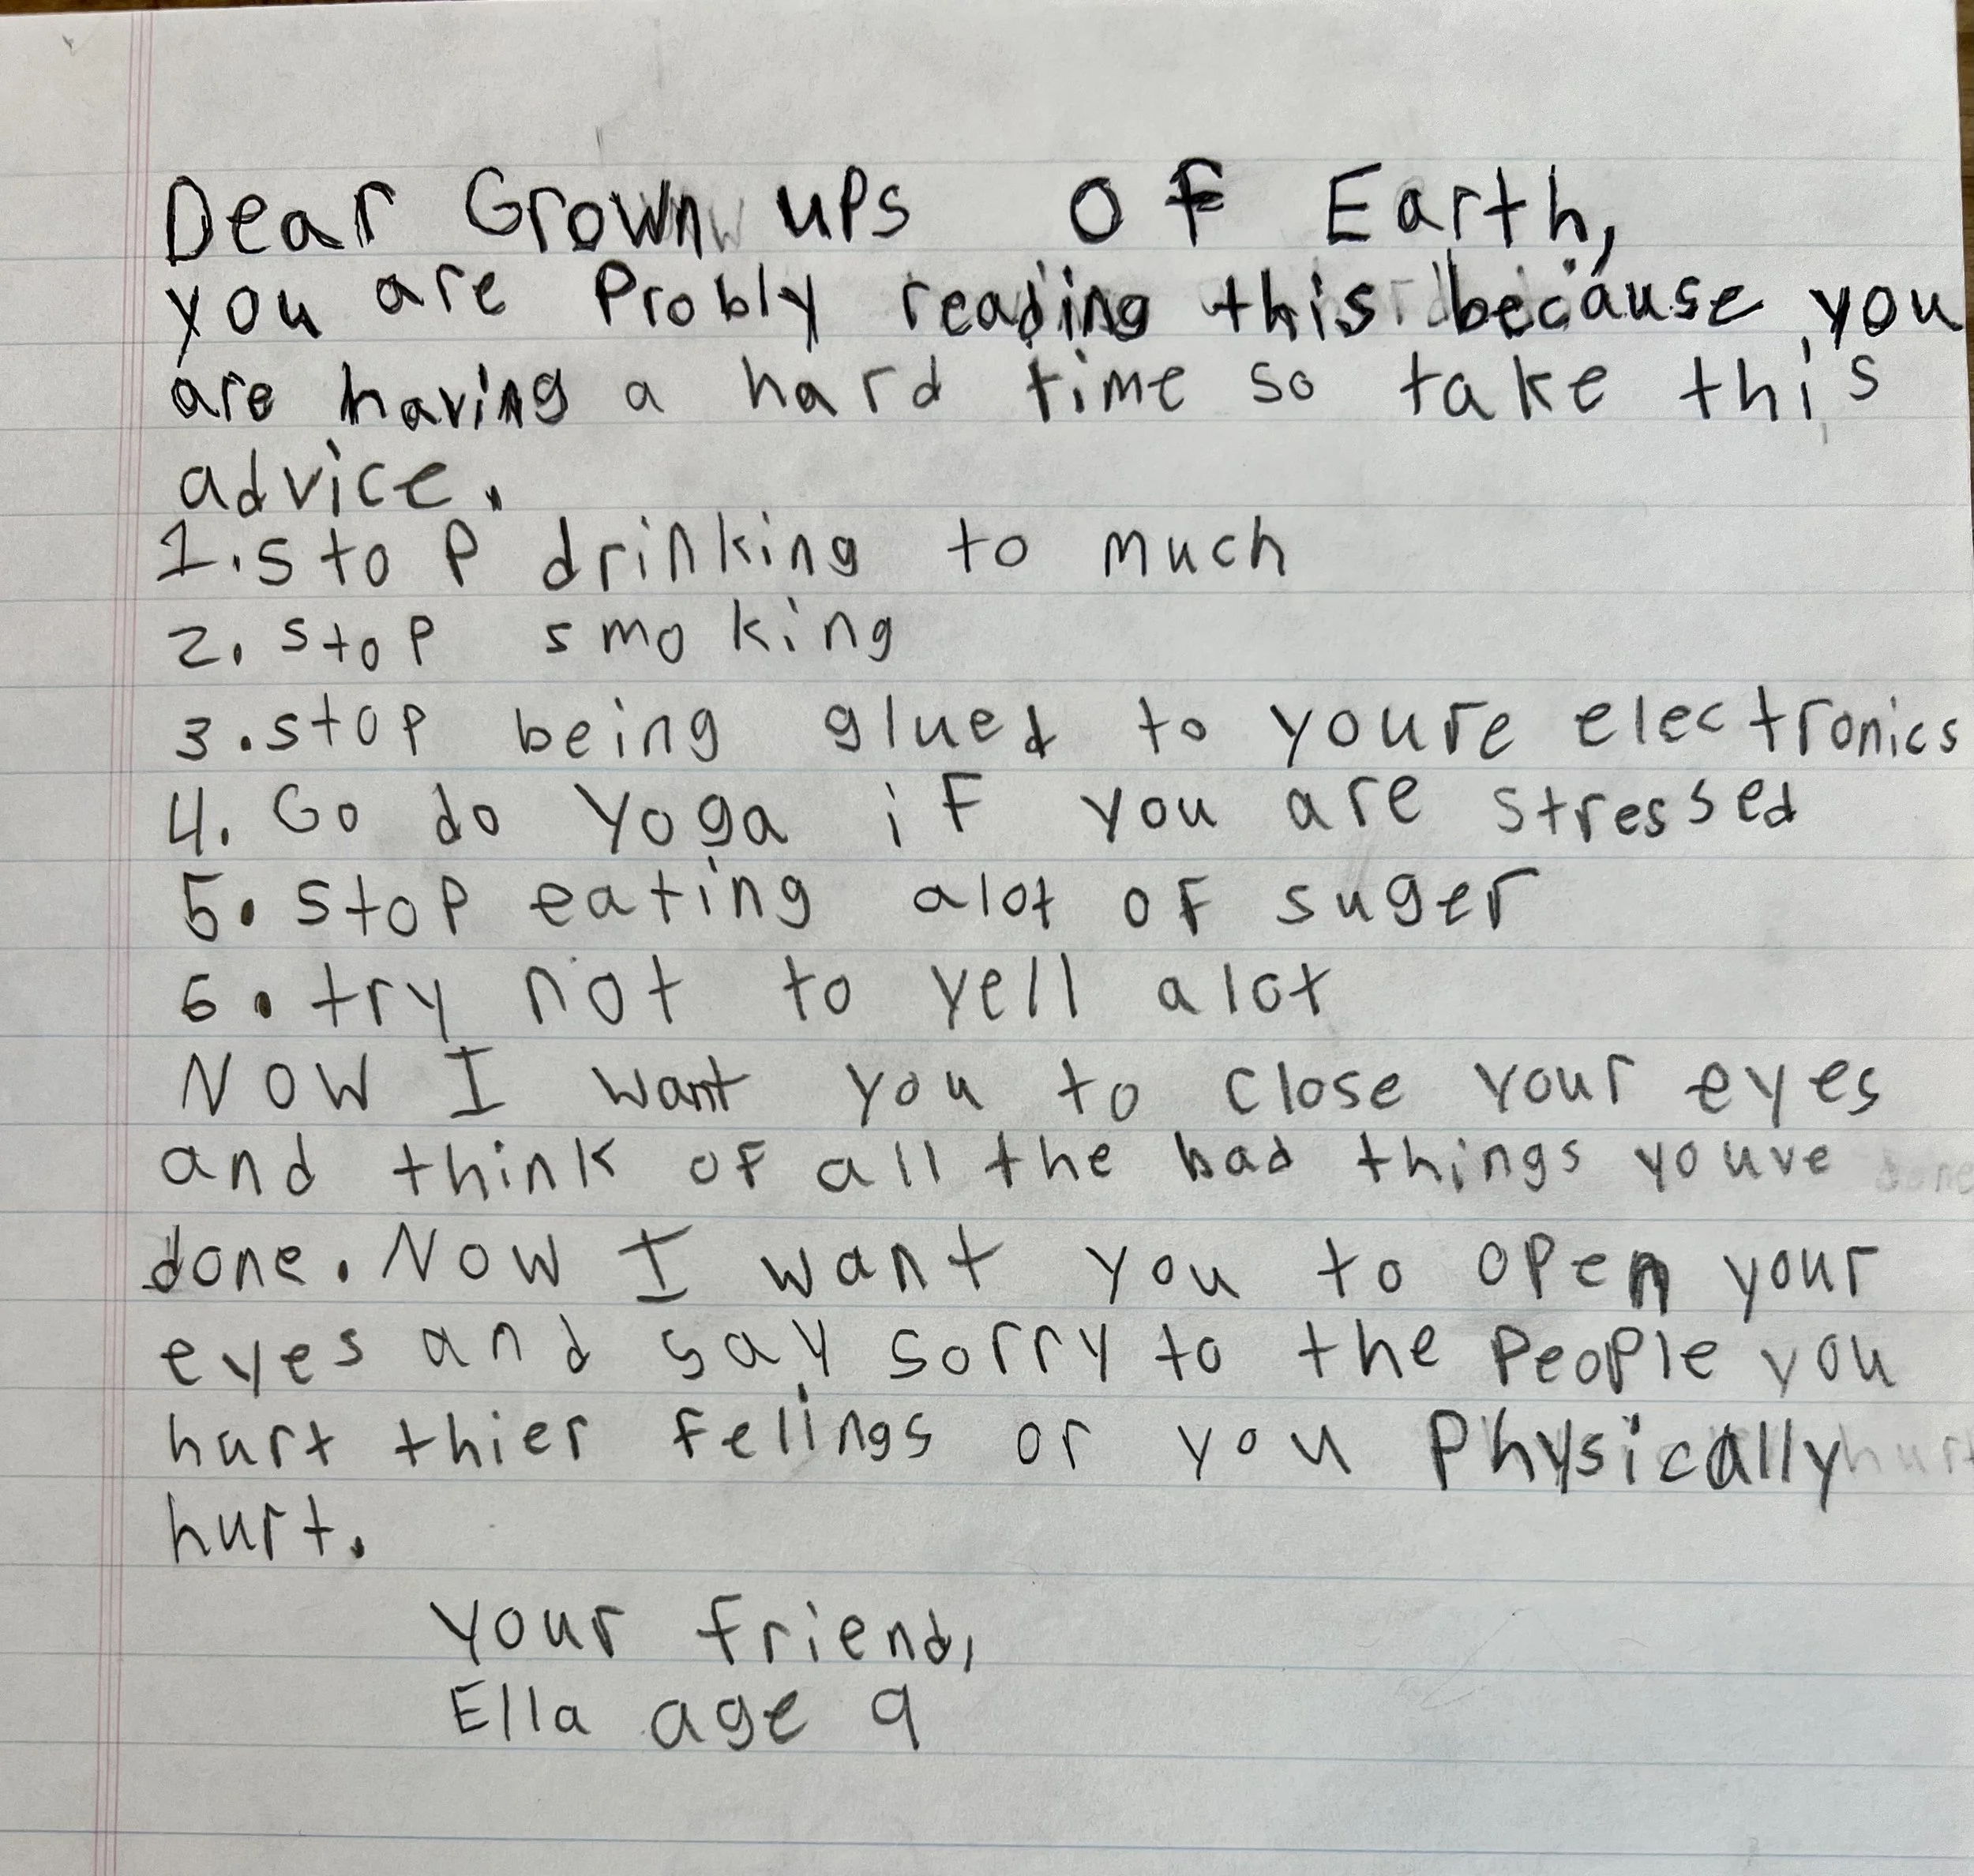 Dear Grown ups of Earth,
you are Probly reading this because you
are having a hard time so take this
advice.
1. stop drinking to much
2. stop smoking
3. stop being glued to youre electronics
4. Go do yoga if you are stressed
5. stop eating alot of suger
6. try not to yell alot
Now I want you to close your eyes
and think of all the bad things youve
done. Now I want you to open your
eyes and say sorry to the people you
hurt thier felings or you Physically
hurt.
your friend,
Ella age 9